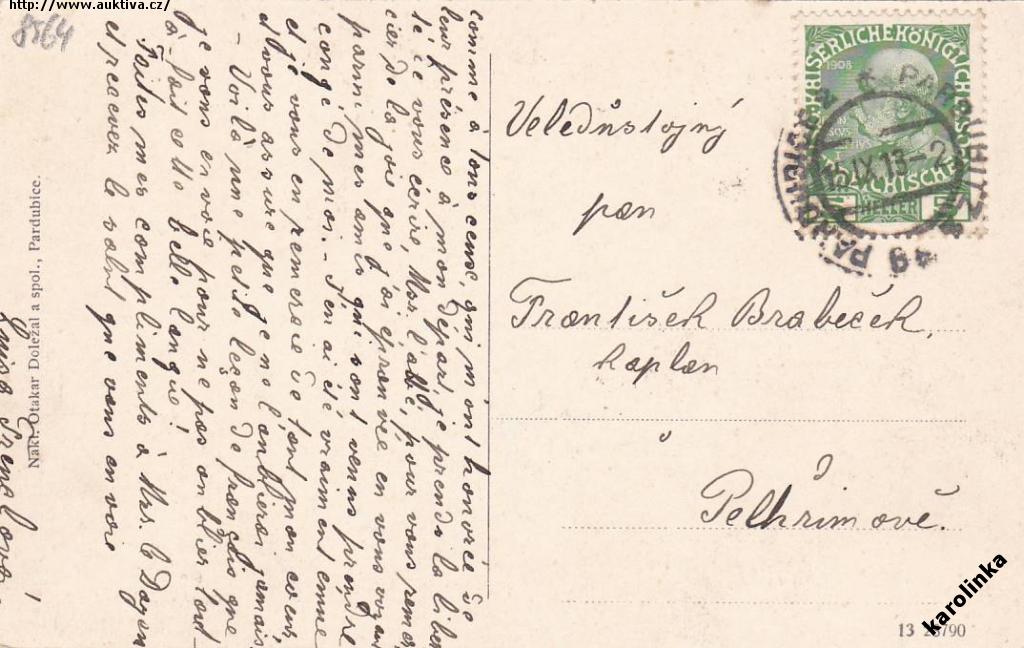 http://www.auktiva.cz/
8564
comme à tous ceux, qui m'ont honorée de
leur présence à mon départ, je prends la liber
té de vous écrire, Msr. l'abbé, pour vous remer
cier de la joie que j'ai éprouvée en vous voyant
parmi mes amis qui sont venus prendre
congé de moi. J'en ai été vraiment émue
et je vous en remercie de tout mon coeur,
et vous assure que je ne l'oublierai jamais
- Voilà une petite leçon de français que
je vous envoie pour ne pas oublier tout
à fait cette belle langue!
Faites mes compliments à Mrs. le Doyen
et recevez le salut que vous envoie
Nakl. Otakar Doležal a spol., Pardubice.
KAISERLICHE KÖNIGLICHE
1908
HELLER
PARDUBITZ
15.IX.13-2
PARDUBICE
Veledůstojný
pan
František Brabeček,
kaplan
v
Pelhřimově.
13 23790
karolinka